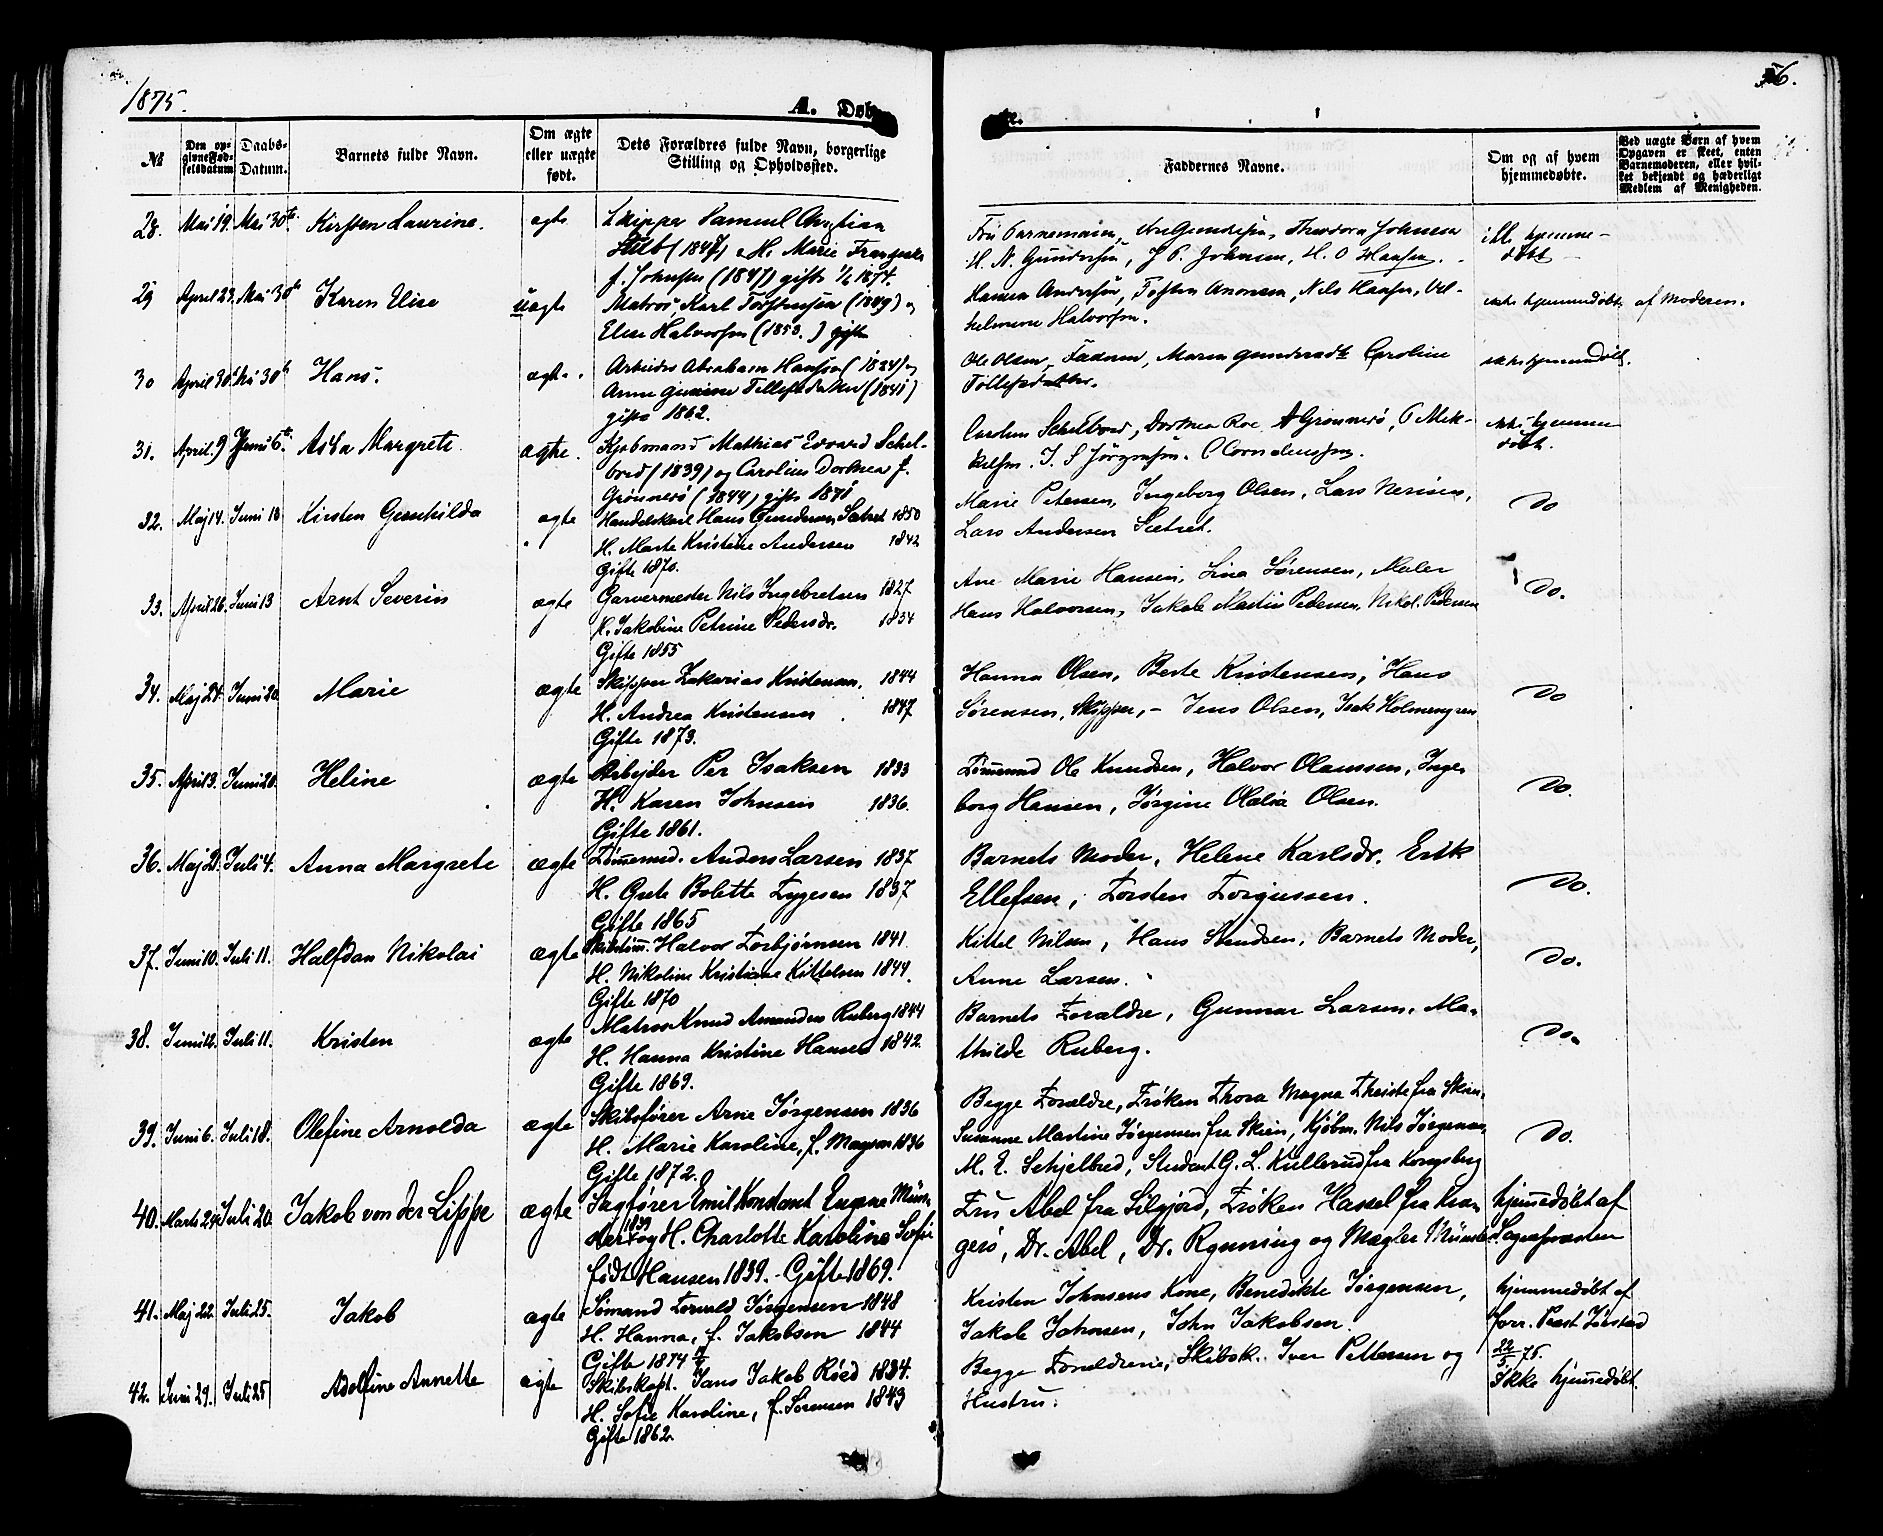 1875.
A. Døb
56.
№
Den opgivne Fødselsdatum
Daabs-Datum.
Barnets fulde Navn.
Om ægte eller uægte født.
Dets Forældres fulde Navn, borgerlige Stilling og Opholdssted.
Faddernes Navne.
Om og af hvem hjemmedøbte.
Ved uægte Børn af hvem Opgaven er skeet, enten Barnemoderen, eller hvilket bekjendt og hæderligt Medlem af Menigheden.
28. Mai 19. Mai 30te Kirsten Laurine. ægte Skipper Samuel Christian
(1847) M. Marie
f. (1847) gifte 1874.
Theodora Johnsen
H. N. Gundersen, J. P. Johnsen, H. O Hansen.
ikke hjemme-
døbt
29 April 23. Mai 30te Karen Elise uægte Matros Karl (1849) og
Elise Halvorsen (1850.) gifte
Hansen Andersen, Aronsen, Nils Hansen, Vil-
helmine Halvorsen.
ikke hjemmedøbt af Moderen.
30 April 30. Mai 30te Hans. ægte. Arbeider Abraham Hansen (1834) og
Anne (1841)
gifte 1862.
Ole Olsen, Faderen, Maren Gundersdt Caroline
Tollefsdatter.
ikke hjemmedøbt.
31. April 9 Juni 6te Asta Margrete ægte. Kjøbmand Mathias Edvard Schel-
bred (1839) og Caroline Dorthea f.
Grønnerø (1844) gifte 1871
Carolen Schelbred, Dorthea Roe, A Grønnerø, P Mik-
kelsen. J. S Jørgensen. C Cornelensen.
ikke hjemme
døbt.
32. Maj 14. Juni 13 Kirsten Gunhilda ægte Handelskarl Hans Gundersen Sætret 1850
H. Marte Kristine Andersen 1842
Gifte 1870.
Marie Petersen, Ingeborg Olsen, Lars Iversen,
Lars Andersen Sætret.
Do
33. April 26. Juni 13 Arnt Severin ægte Garvermester Nils Ingebretsen 1827
H. Jakobine Petrine Pedersdr. 1834
Gifte 1855
Ane Marie Hansen, Lina Sørensen, Maler
Hans Halvorsen, Jakob Martin Pedersen, Nikol. Pedersen
Do.
34. Maj 24. Juni 20. Marie ægte Skipper Zakarias Kristensen. 1844
H. Andrea Kristensen 1847
Gifte 1873.
Hanna Olsen, Berte Kristensen, Hans
Sørensen, Skipper, - Jens Olsen, Isak Holmengren
Do
35. April 3. Juni 20. Heline ægte Arbejder Per Isaksen 1833
H. Karen Johnsen 1836.
Gifte 1861.
Tømmermd Ole Knudsen, Halvor Olaussen, Inge-
borg Hansen, Jørgine Olalia Olsen.
Do.
36. Maj 21. Juli 4. Anna Margrete ægte Tømmermd. Anders Larsen 1837
H. Grete Bolette Tygesen 1837
Gifte 1865
Barnets Moder, Helene Karlsdr. Erik
Ellefsen, Torsten Torgussen.
Do.
37. Juni 10. Juli 11. Halfdan Nikolai ægte Skibstøm. Halvor Torbjørnsen 1841.
H. Nikoline Kristiane Kittelsen 1844.
Gifte 1870
Kittel Nilsen, Hans Svendsen, Barnets Moder,
Anne Larsen.
Do.
38. Juni 12. Juli 11. Kristen ægte Matros Knud Amandus Ruberg 1844
H. Hanna Kristine Hansen 1842.
Gifte 1869.
Barnets Forældre, Gunnar Larsen, Ma-
thilde Ruberg.
Do.
39. Juni 6. Juli 18. Olefine Arnolda ægte Skibsfører Arne Jørgensen 1836
H. Marie Karoline, f. Magnsen 1836
Gifte 1872.
Begge Forældre, Frøken Thora Magna Thriste fra Skien,
Susanne Martine Jørgensen fra Skien, Kjøbm. Nils Jørgensen,
M. E. Schjelbred, Student G. L. Kullerud fra Kongsberg
Do.
40. Marts 24. Juli 20. Jakob von der Lippe ægte Sagfører Emil Konstant Eugene Müns-
ter 1839 og H. Charlotte Karoline Sofie
født Hansen 1839. - Gifte 1869.
Fru Abel fra Silgjord, Frøken Hassel fra Kra-
gerø, Dr. Abel, Dr. Rynning og Mægler Münster
hjemmedøbt af
Sognepræsten
41. Maj 22. Juli 25. Jakob ægte Sømand Torvald Jørgensen 1848
H. Hanna, f. Jakobsen 1844
Gifte 1874
Kristen Johnsens Kone, Benedikte Jørgensen,
Jakob Johnsen, John Jakobsen
hjemmedøbt af
forr. Præst Jørstad
22/5 75.
42. Juni 29. Juli 25 Adolfine Annette ægte Skibskapt. Jans Jakob Røed 1834.
H. Sofie Karoline, f. Sørensen 1843
Gifte 1862
Begge Forældrene, Skibsk. Iver Pettersen og
Hustru.
Ikke hjemmedøbt.